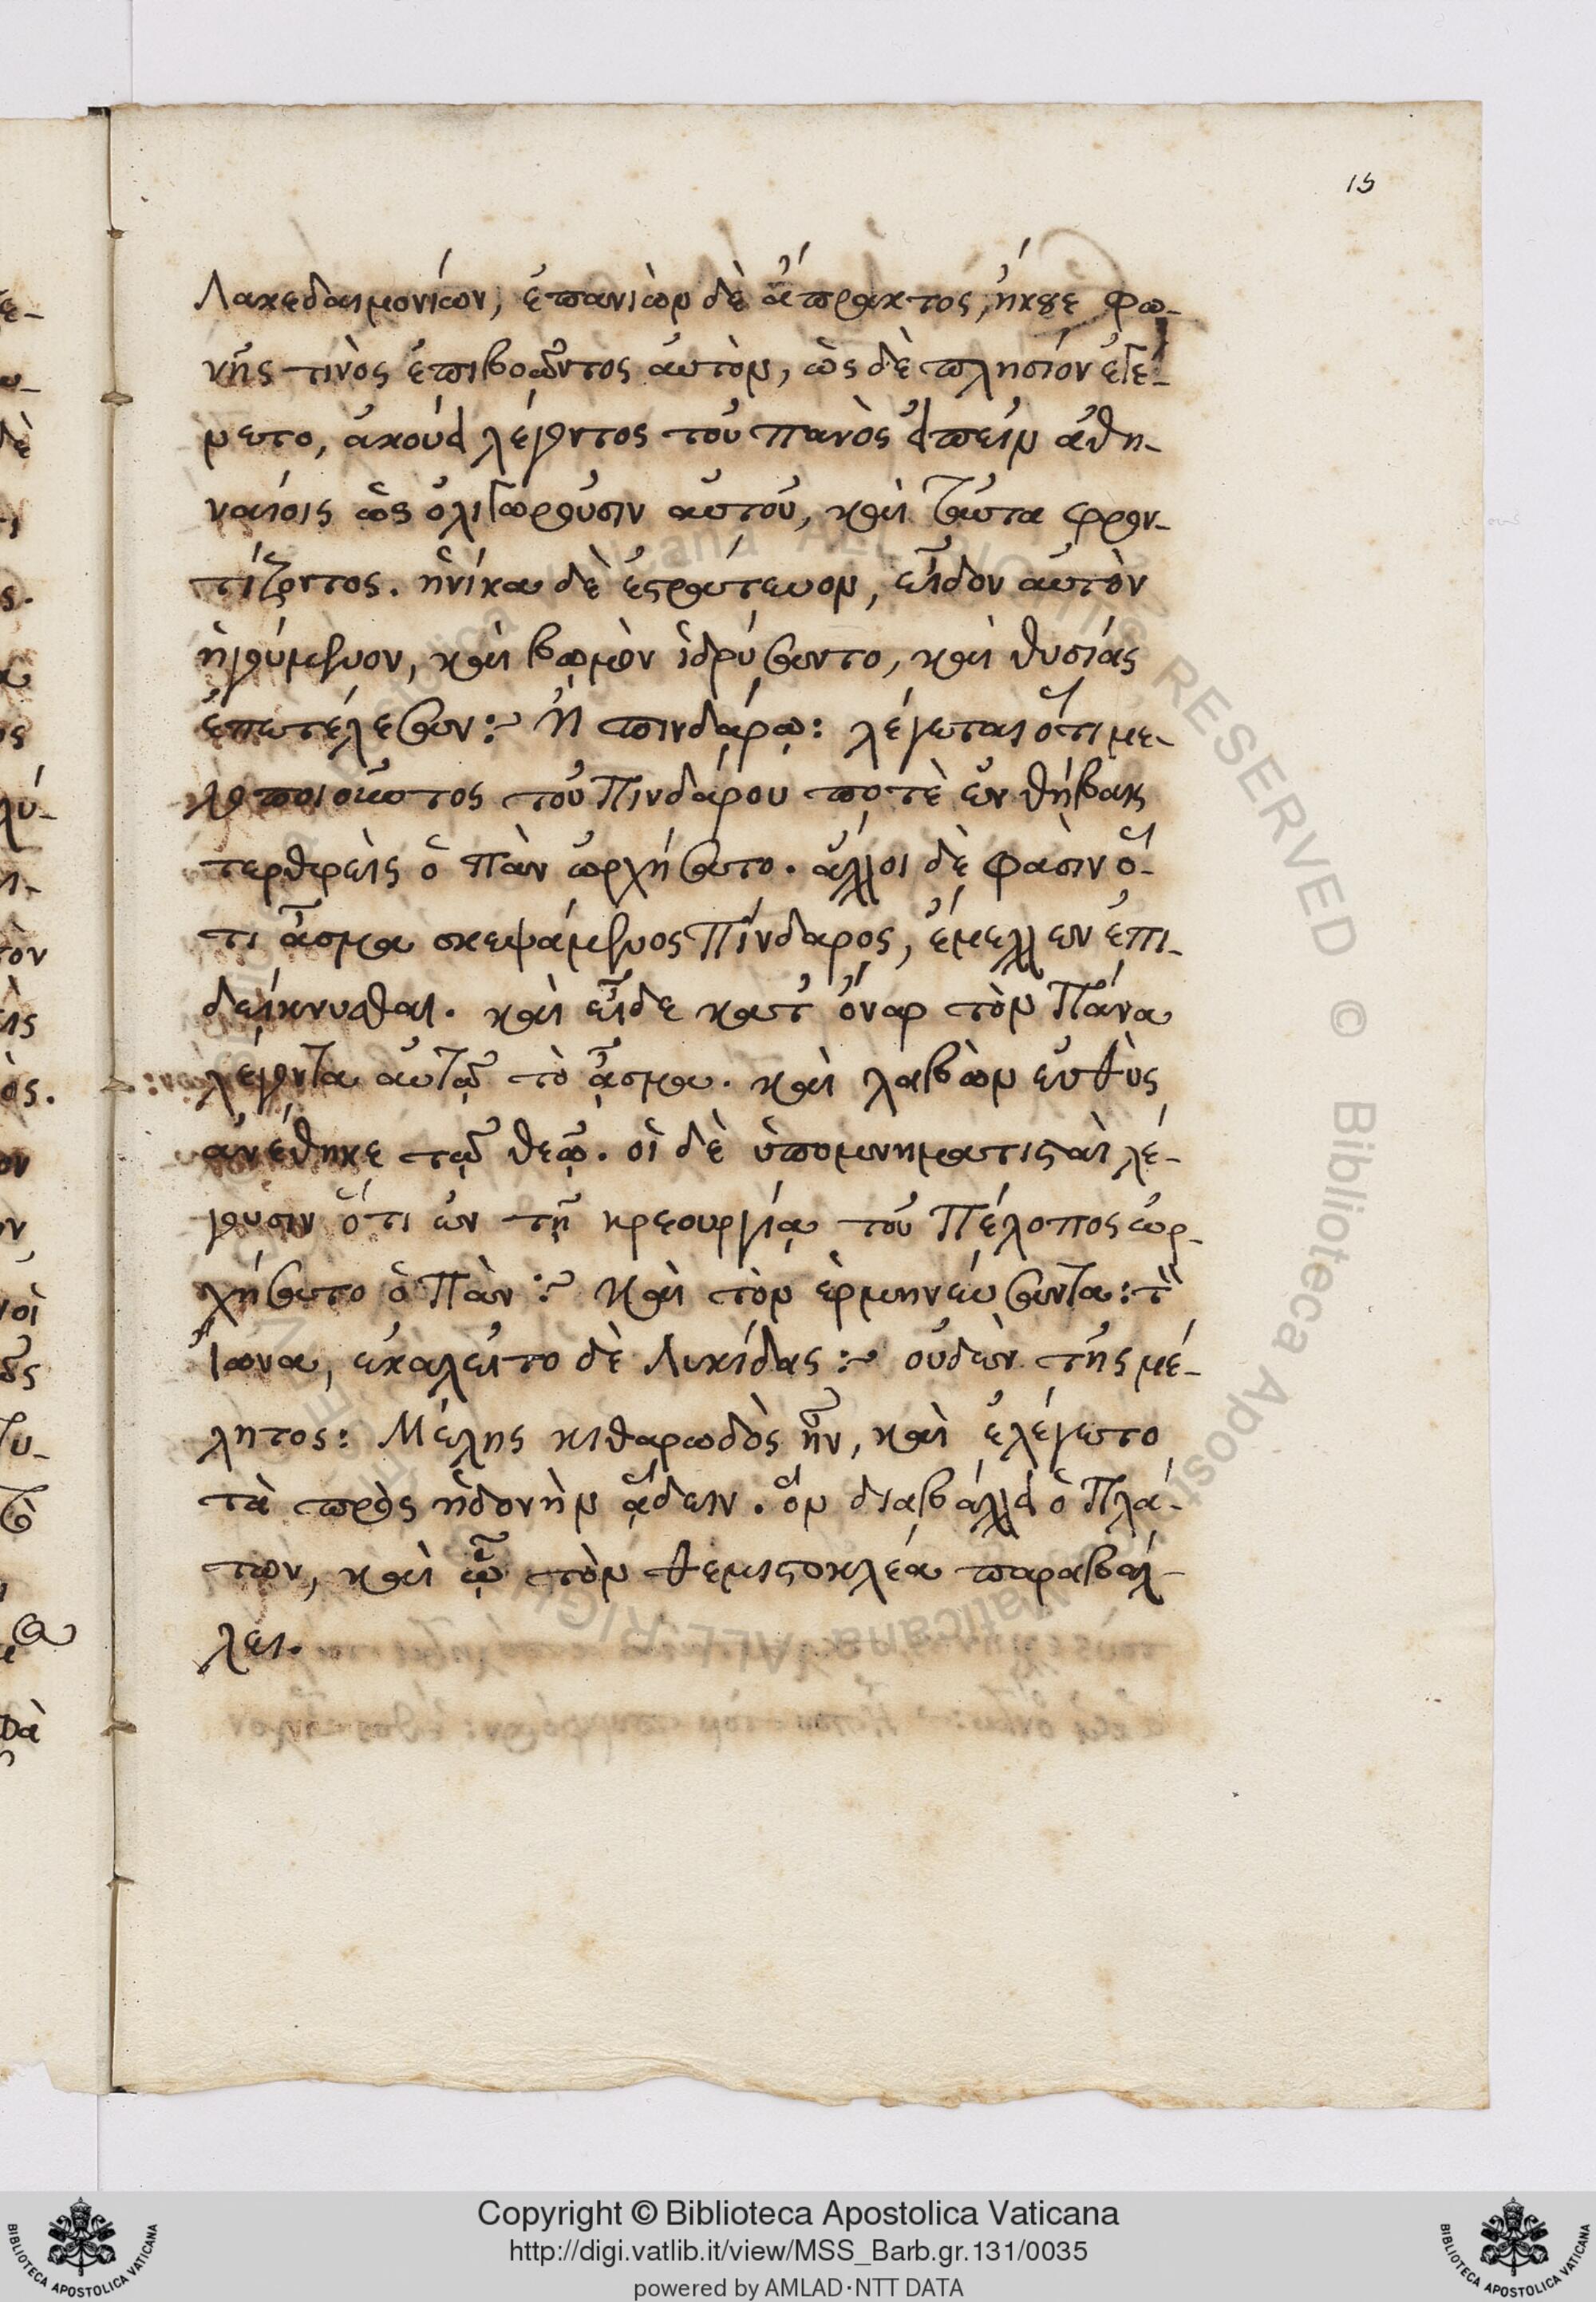 15
Λακεδαιμονίων, ἐπανιὼν δὲ ἄπρακτος, ἤκουε φω-
νῆς τινὸς ἐπιβοῶντος αὐτὸν, ὡς δὲ πλησίον ἐγέ-
νετο, ἀκούει λέγοντος τοῦ πανὸς εἰπεῖν ἀθη-
ναίοις ὡς ὀλιγωροῦσιν αὐτοῦ, καὶ ταῦτα φρον-
τίζοντος. ἡνίκα δὲ ἐστράτευον, εἶδον αὐτὸν
ἡγούμενον, καὶ βωμὸν ἱδρύσαντο, καὶ θυσίας
ἐπετέλεσαν: Ἢ πινδάρῳ: λέγεται ὅτι με-
λοποιοῦντος τοῦ Πινδάρου ποτὲ ἐν θήβαις
τερθρεὶς ὁ Πὰν ὠρχήσατο. ἄλλοι δὲ φασὶν ὅ-
τι ᾆσμα σκεψάμενος Πίνδαρος, ἔμελλεν ἐπι-
δείκνυσθαι. καὶ εἶδε κατ' ὄναρ τὸν Πάνα
λέγοντα αὐτῷ τὸ ᾆσμα. καὶ λαβὼν εὐθὺς
ἀνέθηκε τῷ θεῷ. οἱ δὲ ὑπομνηματισταὶ λέ-
γουσιν ὅτι ἐν τῇ κρεουργίᾳ τοῦ Πέλοπος ὠρ-
χήσατο ὁ Πὰν: Καὶ τὸν ἑρμηνεύσαντα: τὸν
Ἴωνα, ἐκαλεῖτο δὲ Λυκίδας: οὐδὲν τῆς μέ-
λητος: Μέλης κιθαρωδὸς ἦν, καὶ ἐλέγετο
τὰ πρὸς ἡδονὴν ᾄδειν. ὃν διαβάλλει ὁ Πλά-
των, καὶ ᾧ τὸν θεμιστοκλέα παραβάλ-
λει.
Copyright © Biblioteca Apostolica Vaticana
http://digi.vatlib.it/view/MSS_Barb.gr.131/0035
powered by AMLAD·NTT DATA